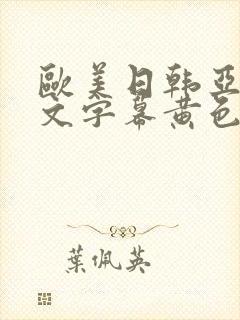 歐美日韩亞
文字幕黄色
葉佩英